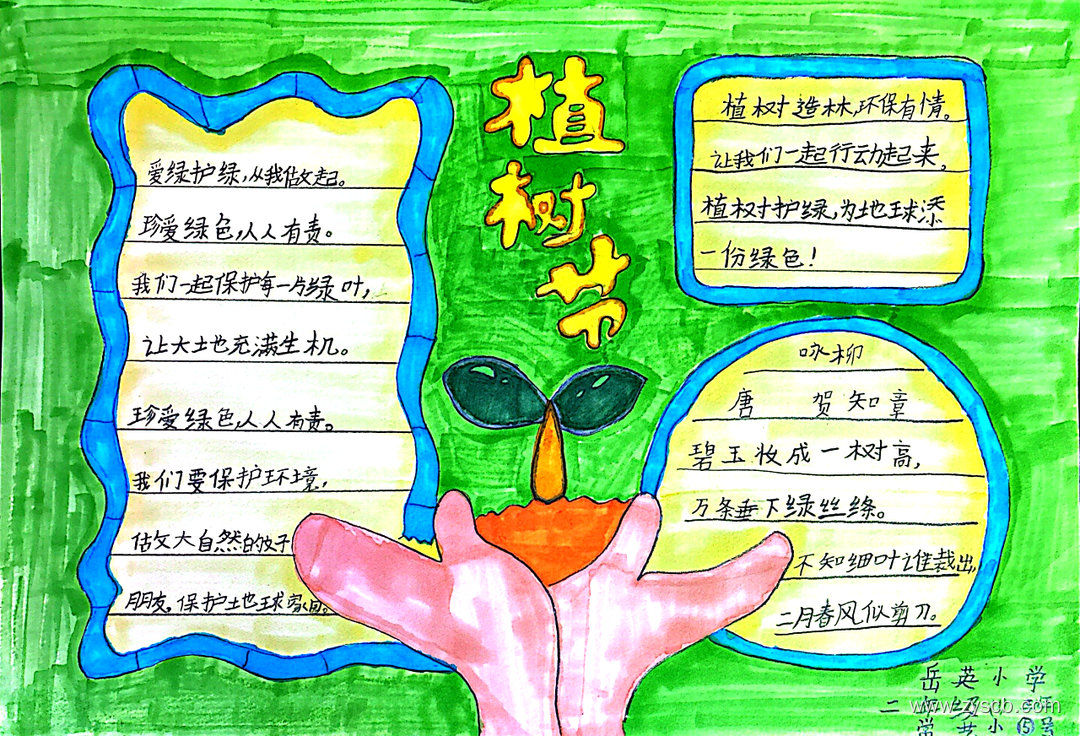 植树节
爱绿护绿,从我做起。
珍爱绿色,人人有责。
我们一起保护每一片绿叶,
让大地充满生机。
珍爱绿色,人人有责。
我们要保护环境,
做大自然的好
朋友。保护地球家园。
植树造林,环保有情。
让我们一起行动起来,
植树护绿,为地球添
一份绿色!
咏柳
唐 贺知章
碧玉妆成一树高,
万条垂下绿丝绦。
不知细叶谁裁出,
二月春风似剪刀。
岳英小学
二
⑤号
www.zyscb.com